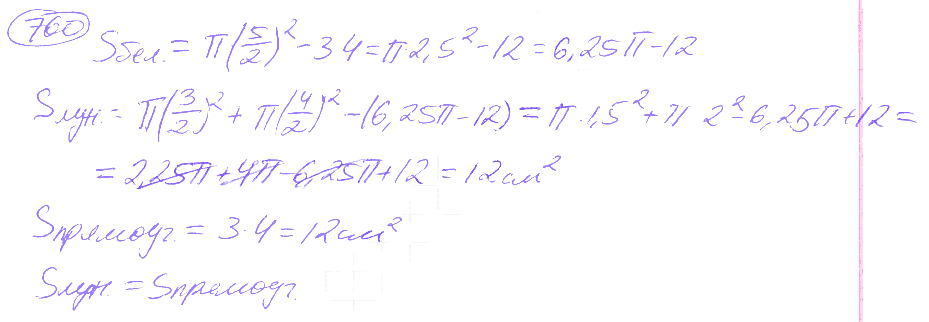 700
Sбел. = π(5/2)² - 3·4 = π·2,5² - 12 = 6,25π - 12
Sлун. = π(3/2)² + π(4/2)² - (6,25π - 12) = π·1,5² + π 2² - 6,25π + 12 =
= 2,25π + 4π - 6,25π + 12 = 12 см²
Sпрямоуг. = 3·4 = 12 см²
Sлун. = Sпрямоуг.